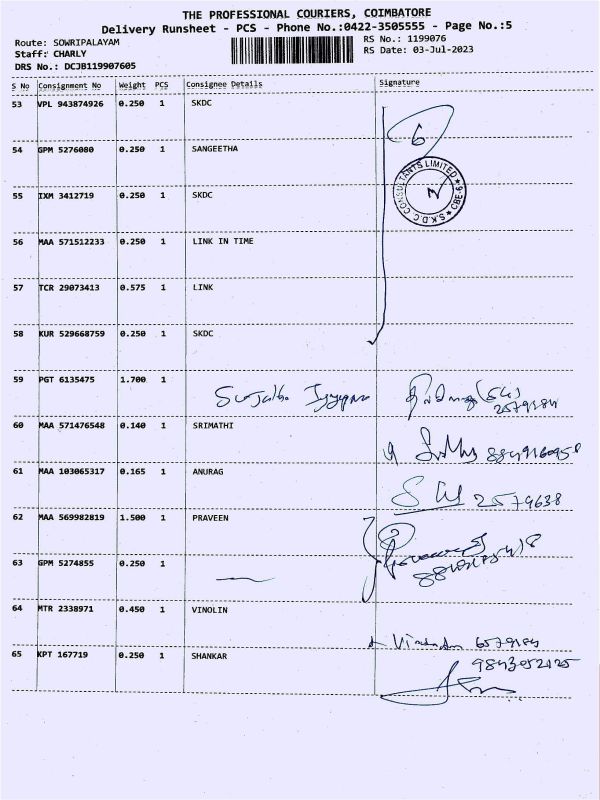 THE PROFESSIONAL COURIERS, COIMBATORE
Delivery Runsheet - PCS - Phone No.:0422-3505555 - Page No.:5
Route: SOWRIPALAYAM
RS No.: 1199076
Staff: CHARLY
RS Date: 03-Jul-2023
DRS No.: DCJB119907605
S No Consignment No Weight PCS Consignee Details Signature
53 VPL 943874926 0.250 1 SKDC
6
54 GPM 5276080 0.250 1 SANGEETHA
S.K.D.C. CONSULTANTS LIMITED ★ CBE-6 ★
55 IXM 3412719 0.250 1 SKDC
56 MAA 571512233 0.250 1 LINK IN TIME
57 TCR 29073413 0.575 1 LINK
58 KUR 529668759 0.250 1 SKDC
59 PGT 6135475 1.700 1
Sujatha
60 MAA 571476548 0.140 1 SRIMATHI
61 MAA 103065317 0.165 1 ANURAG
2579638
62 MAA 569982819 1.500 1 PRAVEEN
63 GPM 5274855 0.250 1
64 MTR 2338971 0.450 1 VINOLIN
65 KPT 167719 0.250 1 SHANKAR